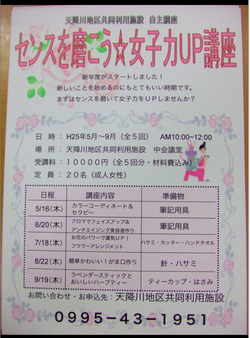 天降川地区共同利用施設 自主講座
センスを磨こう☆女子力UP講座
新年度がスタートしました!
新しいことを始めるのにもとてもいい時期です。
まずはセンスを磨いて女子力をUPしませんか?
日 時:H25年5月~9月(全5回) AM10:00~12:00
場 所:天降川地区共同利用施設 中会議室
受講料:10000円(全5回分・材料費込み)
定 員:20名(成人女性)
日程 講座内容 準備物
5/16(木) カラーコーディネート&セラピー 筆記用具
6/20(木) アロマでフェイスアップ&アンチエイジング美容液作り 筆記用具
7/18(木) お花のパワーで運気UP!フラワーアレンジメント ハサミ・カッター・ハンドタオル
8/22(木) 簡単かわいい!がま口作り 針・ハサミ
9/19(木) ラベンダースティックとおいしいハーブティー ティーカップ・はさみ
お問い合わせ・お申込先:天降川地区共同利用施設
0995-43-1951